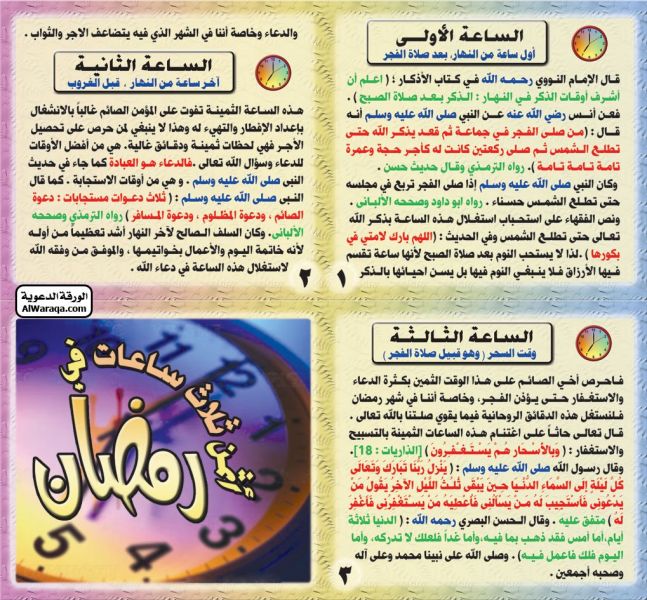 الساعة الأولى
أول ساعة من النهار، بعد صلاة الفجر
قال الإمام النووي رحمه الله في كتاب الأذكار : ( اعلم أن
أشرف أوقات الذكر في النهار : الذكر بعد صلاة الصبح ) .
فعن أنس رضي الله عنه عن النبي صلى الله عليه وسلم أنه
قال : ( من صلى الفجر في جماعة ثم قعد يذكر الله حتى
تطلع الشمس ثم صلى ركعتين كانت له كأجر حجة وعمرة
تامة تامة تامة ). رواه الترمذي وقال حديث حسن .
وكان النبي صلى الله عليه وسلم إذا صلى الفجر تربع في مجلسه
حتى تطلع الشمس حسناء . رواه ابو داود وصححه الألباني .
ونص الفقهاء على استحباب استغلال هذه الساعة بذكر الله
تعالى حتى تطلع الشمس وفي الحديث : (اللهم بارك لامتي في
بكورها ) .لذا لا يستحب النوم بعد صلاة الصبح لأنها ساعة تقسم
فيها الأرزاق فلا ينبغي النوم فيها بل يسن احيائها بالذكر
١
والدعاء وخاصة أننا في الشهر الذي فيه يتضاعف الاجر والثواب .
الساعة الثانية
آخر ساعة من النهار ، قبل الغروب
هذه الساعة الثمينة تفوت على المؤمن الصائم غالباً بالانشغال
بإعداد الإفطار والتهيء له وهذا لا ينبغي لمن حرص على تحصيل
الأجر فهي لحظات ثمينة ودقائق غالية. هي من أفضل الأوقات
للدعاء وسؤال الله تعالى .فالدعاء هو العبادة كما جاء في حديث
النبي صلى الله عليه وسلم . و هي من أوقات الاستجابة . كما قال
النبي صلى الله عليه وسلم : ( ثلاث دعوات مستجابات : دعوة
الصائم ، ودعوة المظلوم ، ودعوة المسافر ) رواه الترمذي وصححه
الألباني. وكان السلف الصالح لآخر النهار أشد تعظيماً من أوله
لأنه خاتمة اليوم والأعمال بخواتيمها ، والموفق من وفقه الله
لاستغلال هذه الساعة في دعاء الله .
٢
الساعة الثالثة
وقت السحر ( وهو قبيل صلاة الفجر )
فاحرص أخي الصائم على هذا الوقت الثمين بكثرة الدعاء
والاستغفار حتى يؤذن الفجر، وخاصة أننا في شهر رمضان
فلنستغل هذه الدقائق الروحانية فيما يقوي صلتنا بالله تعالى .
قال تعالى حاثاً على اغتنام هذه الساعات الثمينة بالتسبيح
والاستغفار : ( وبالأسحار هم يستغفرون ) [الذاريات : 18].
وقال رسول الله صلى الله عليه وسلم : ( ينزل ربنا تبارك وتعالى
كل ليلة إلى السماء الدنيا حين يبقى ثلث الليل الآخر يقول من
يدعوني فأستجيب له من يسألني فأعطيه من يستغفرني فأغفر
له ) متفق عليه . وقال الحسن البصري رحمه الله : ( الدنيا ثلاثة
أيام، أما أمس فقد ذهب بما فيه،وأما غداً فلعلك لا تدركه، وأما
اليوم فلك فاعمل فيه ) . وصلى الله على نبينا محمد وعلى آله
وصحبه أجمعين .
٣
الورقة الدعوية
AlWaraqa.com
أثمن ثلاث ساعات في
رمضان
12
11
1
2
3
4
5